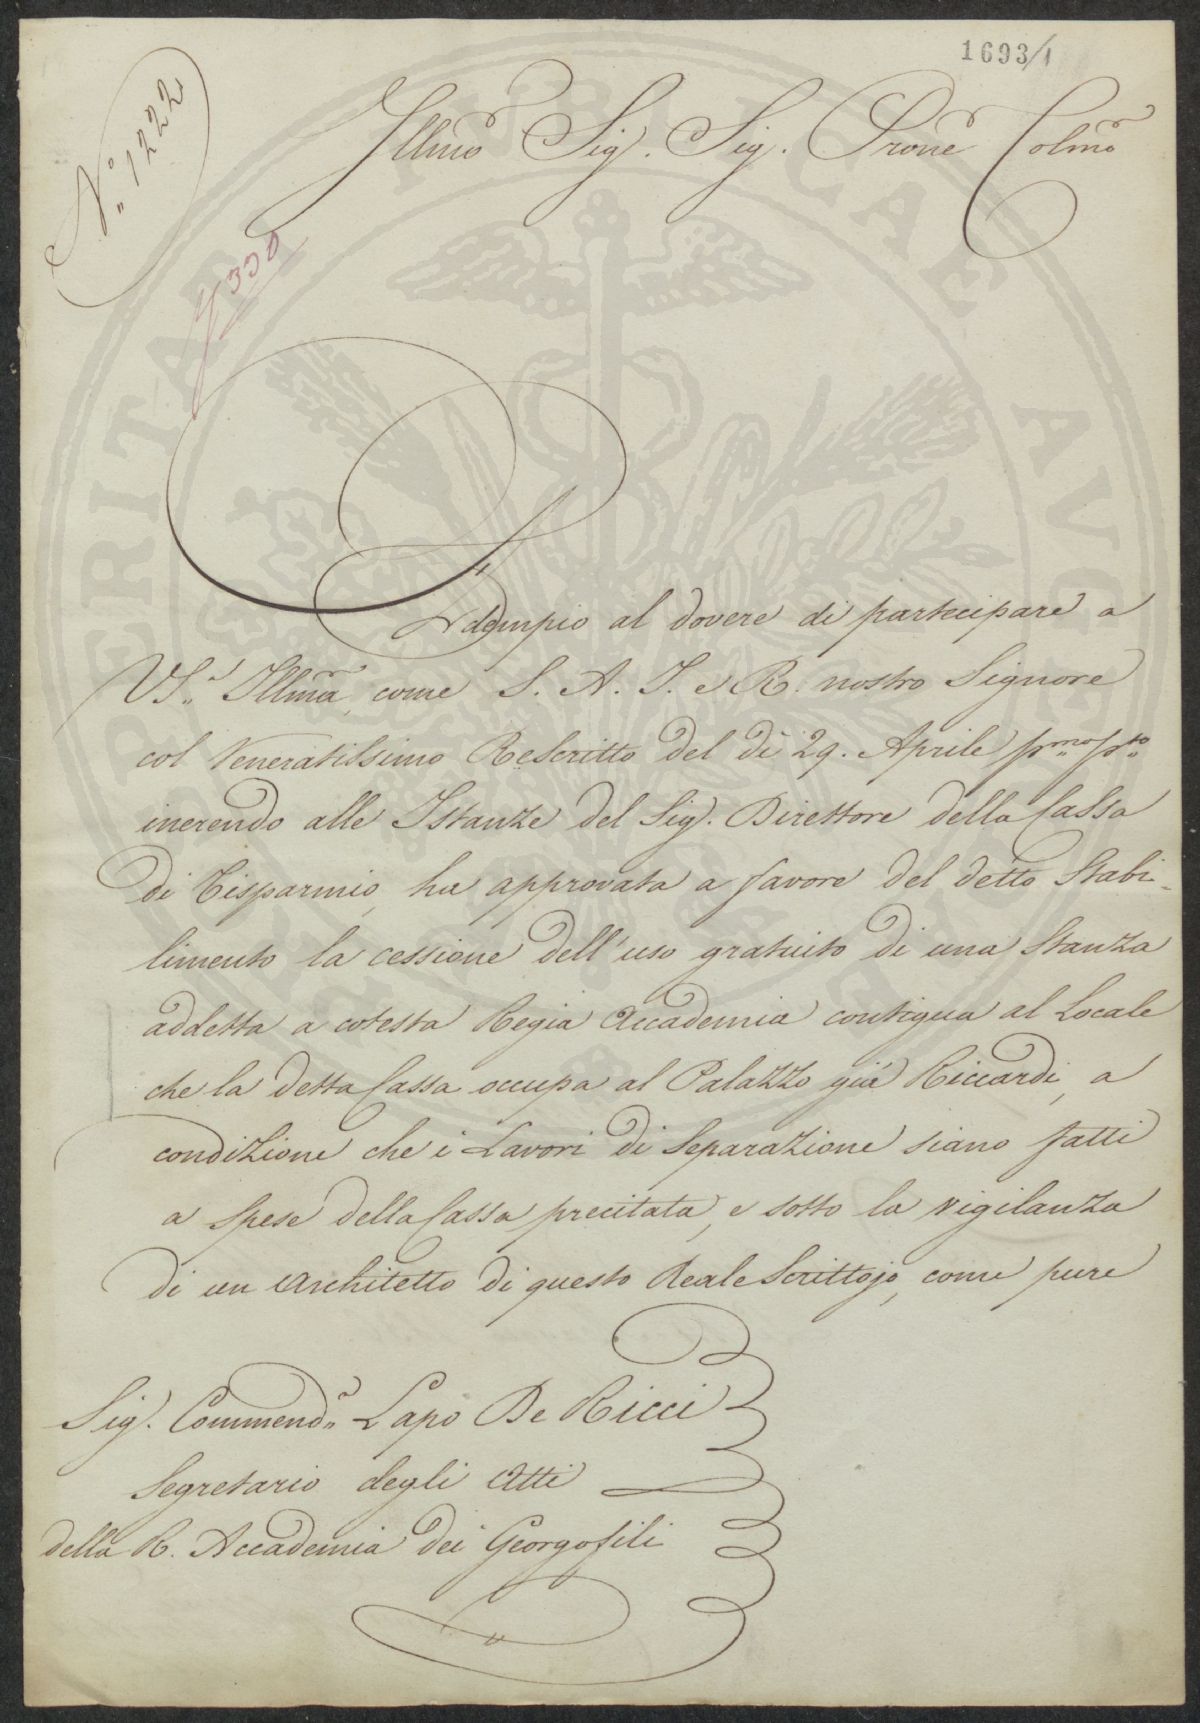 1693/1
N.° 1222
Illmo Sig. Sig. Prone Colmo
Adempio al dovere di partecipare a
VS.a Illma, come S. A. I. e R. nostro Signore
col Veneratissimo Rescritto del dì 29. Aprile pmo pto
inerendo alle Istanze del Sig. Direttore della Cassa
di Risparmio, ha approvata a favore del detto Stabi-
limento la cessione dell'uso gratuito di una Stanza
addetta a cotesta Regia Accademia contigua al Locale
che la detta Cassa occupa al Palazzo già Riccardi, a
condizione che i Lavori di Separazione siano fatti
a Spese della Cassa precitata, e sotto la vigilanza
di un Architetto di questo Reale Scrittojo, come pure
Sig. Commend.r Lapo De Ricci
Segretario degli Atti
della R. Accademia dei Georgofili
PROSPERITATI PUBLICAE AUGENDAE